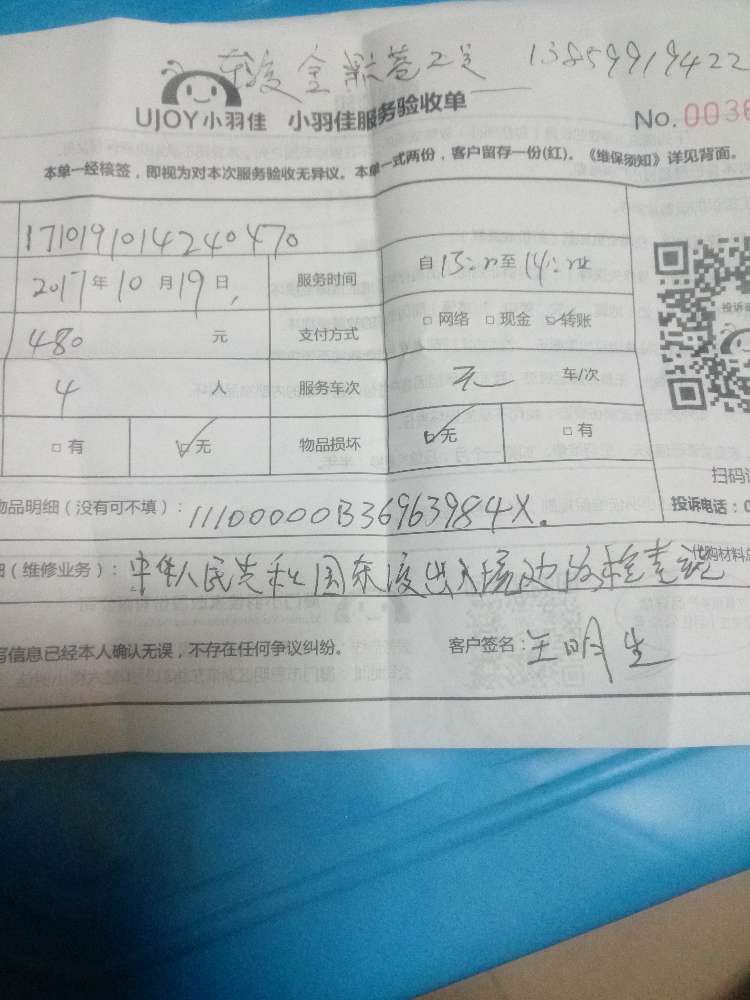 东渡金 巷2号 13859919422
UJOY小羽佳 小羽佳服务验收单 No.0036
本单一经核签，即视为对本次服务验收无异议。本单一式两份，客户留存一份(红)。《维保须知》详见背面。
1710191014240470
2017年10月19日 服务时间 自13: 至14:
480 元 支付方式 □网络 □现金 ☑转账
4 人 服务车次 车/次
□有 ☑无 物品损坏 ☑无 □有
扫码
物品明细（没有可不填）：11100000B36963984X. 投诉电话：0
（维修业务）：中华人民共和国东渡出入境边防检查站 代购材料
写信息已经本人确认无误，不存在任何争议纠纷。 客户签名：王明生